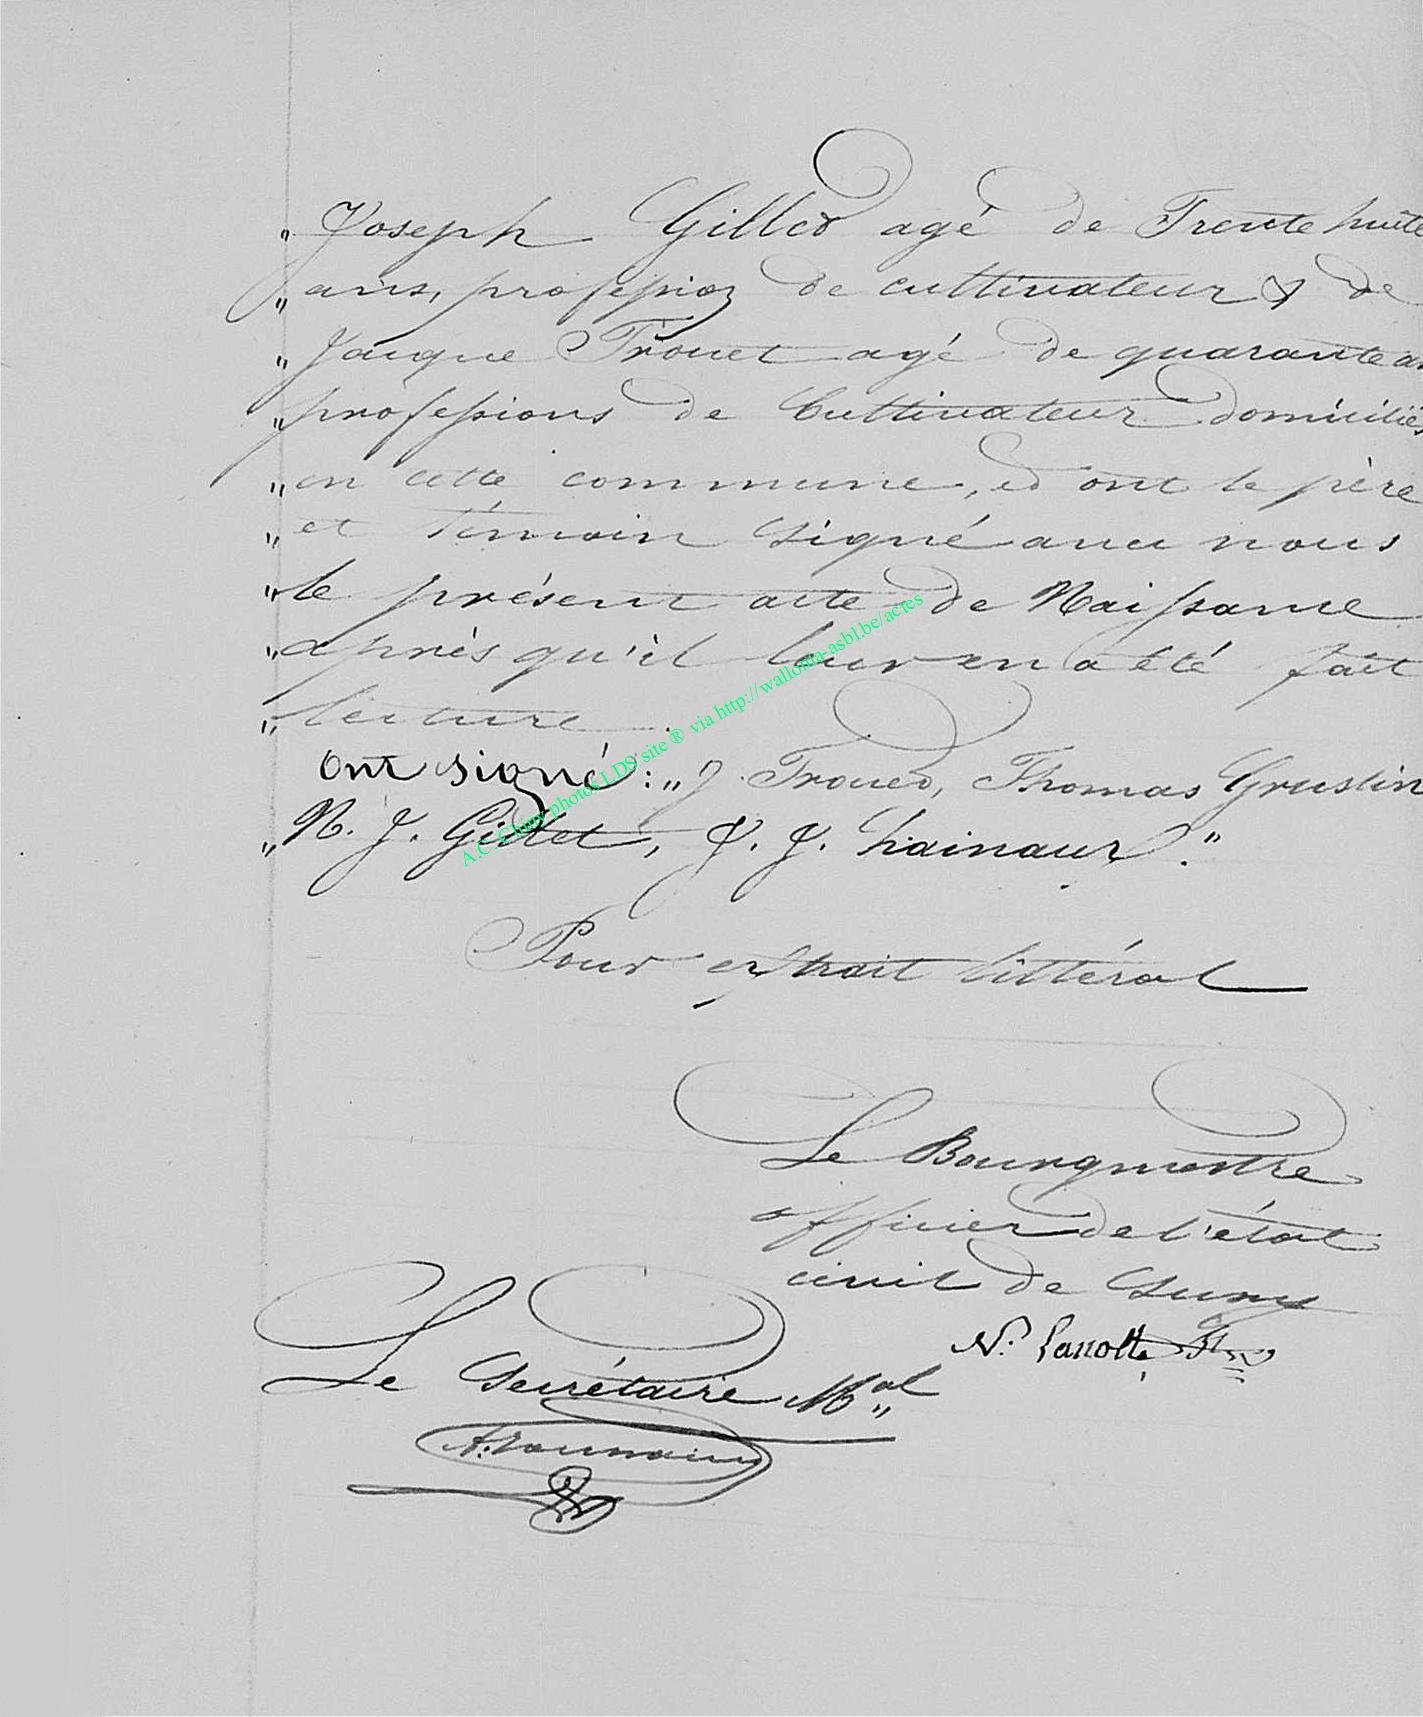 " Joseph Gillet agé de Trente huite
" ans, profession de cultivateur & de
" Jacque Trouet agé de quarante a
" professions de Cultivateur domiciliés
" en cette commune, et ont le père
" et témoin signé avec nous
" le présent acte de Naissance
" après qu'il leur en a été fait
" lecture.
Ont signé: " J. Trouet, Thomas Grustin
" N. J. Gillet, J. J. hainaux."
Pour extrait littéral
Le Bourgmestre
officier de l'état
civil de Suxy
N. Lanotte
Le Secrétaire
A.C. Chiny photos LDS site ® via http://wallonia-asbl.be/actes